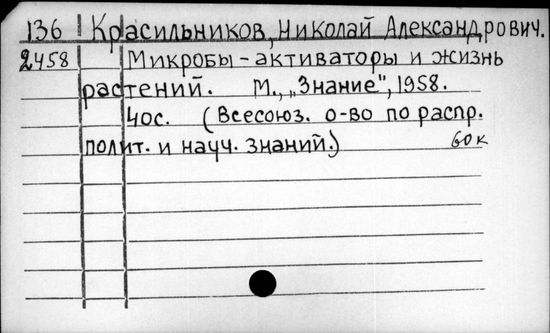 136 Красильников, Николай Александрович.
2458 Микробы - активаторы и жизнь
растений. М., „Знание", 1958.
40с. (Всесоюз. о-во по распр.
полит. и науч. знаний.) 60 к